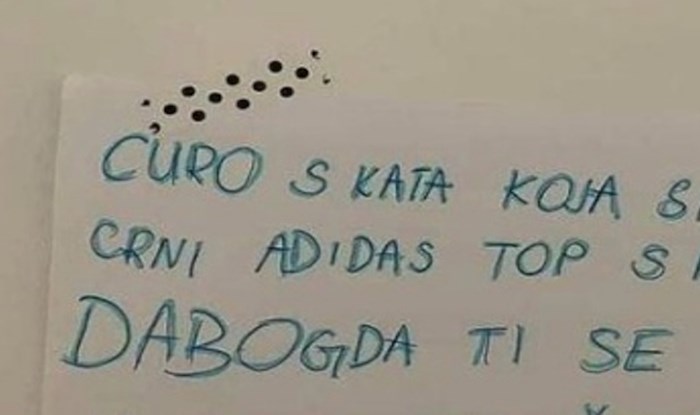 CURO S KATA KOJA S
CRNI ADIDAS TOP S
DABOGDA TI SE